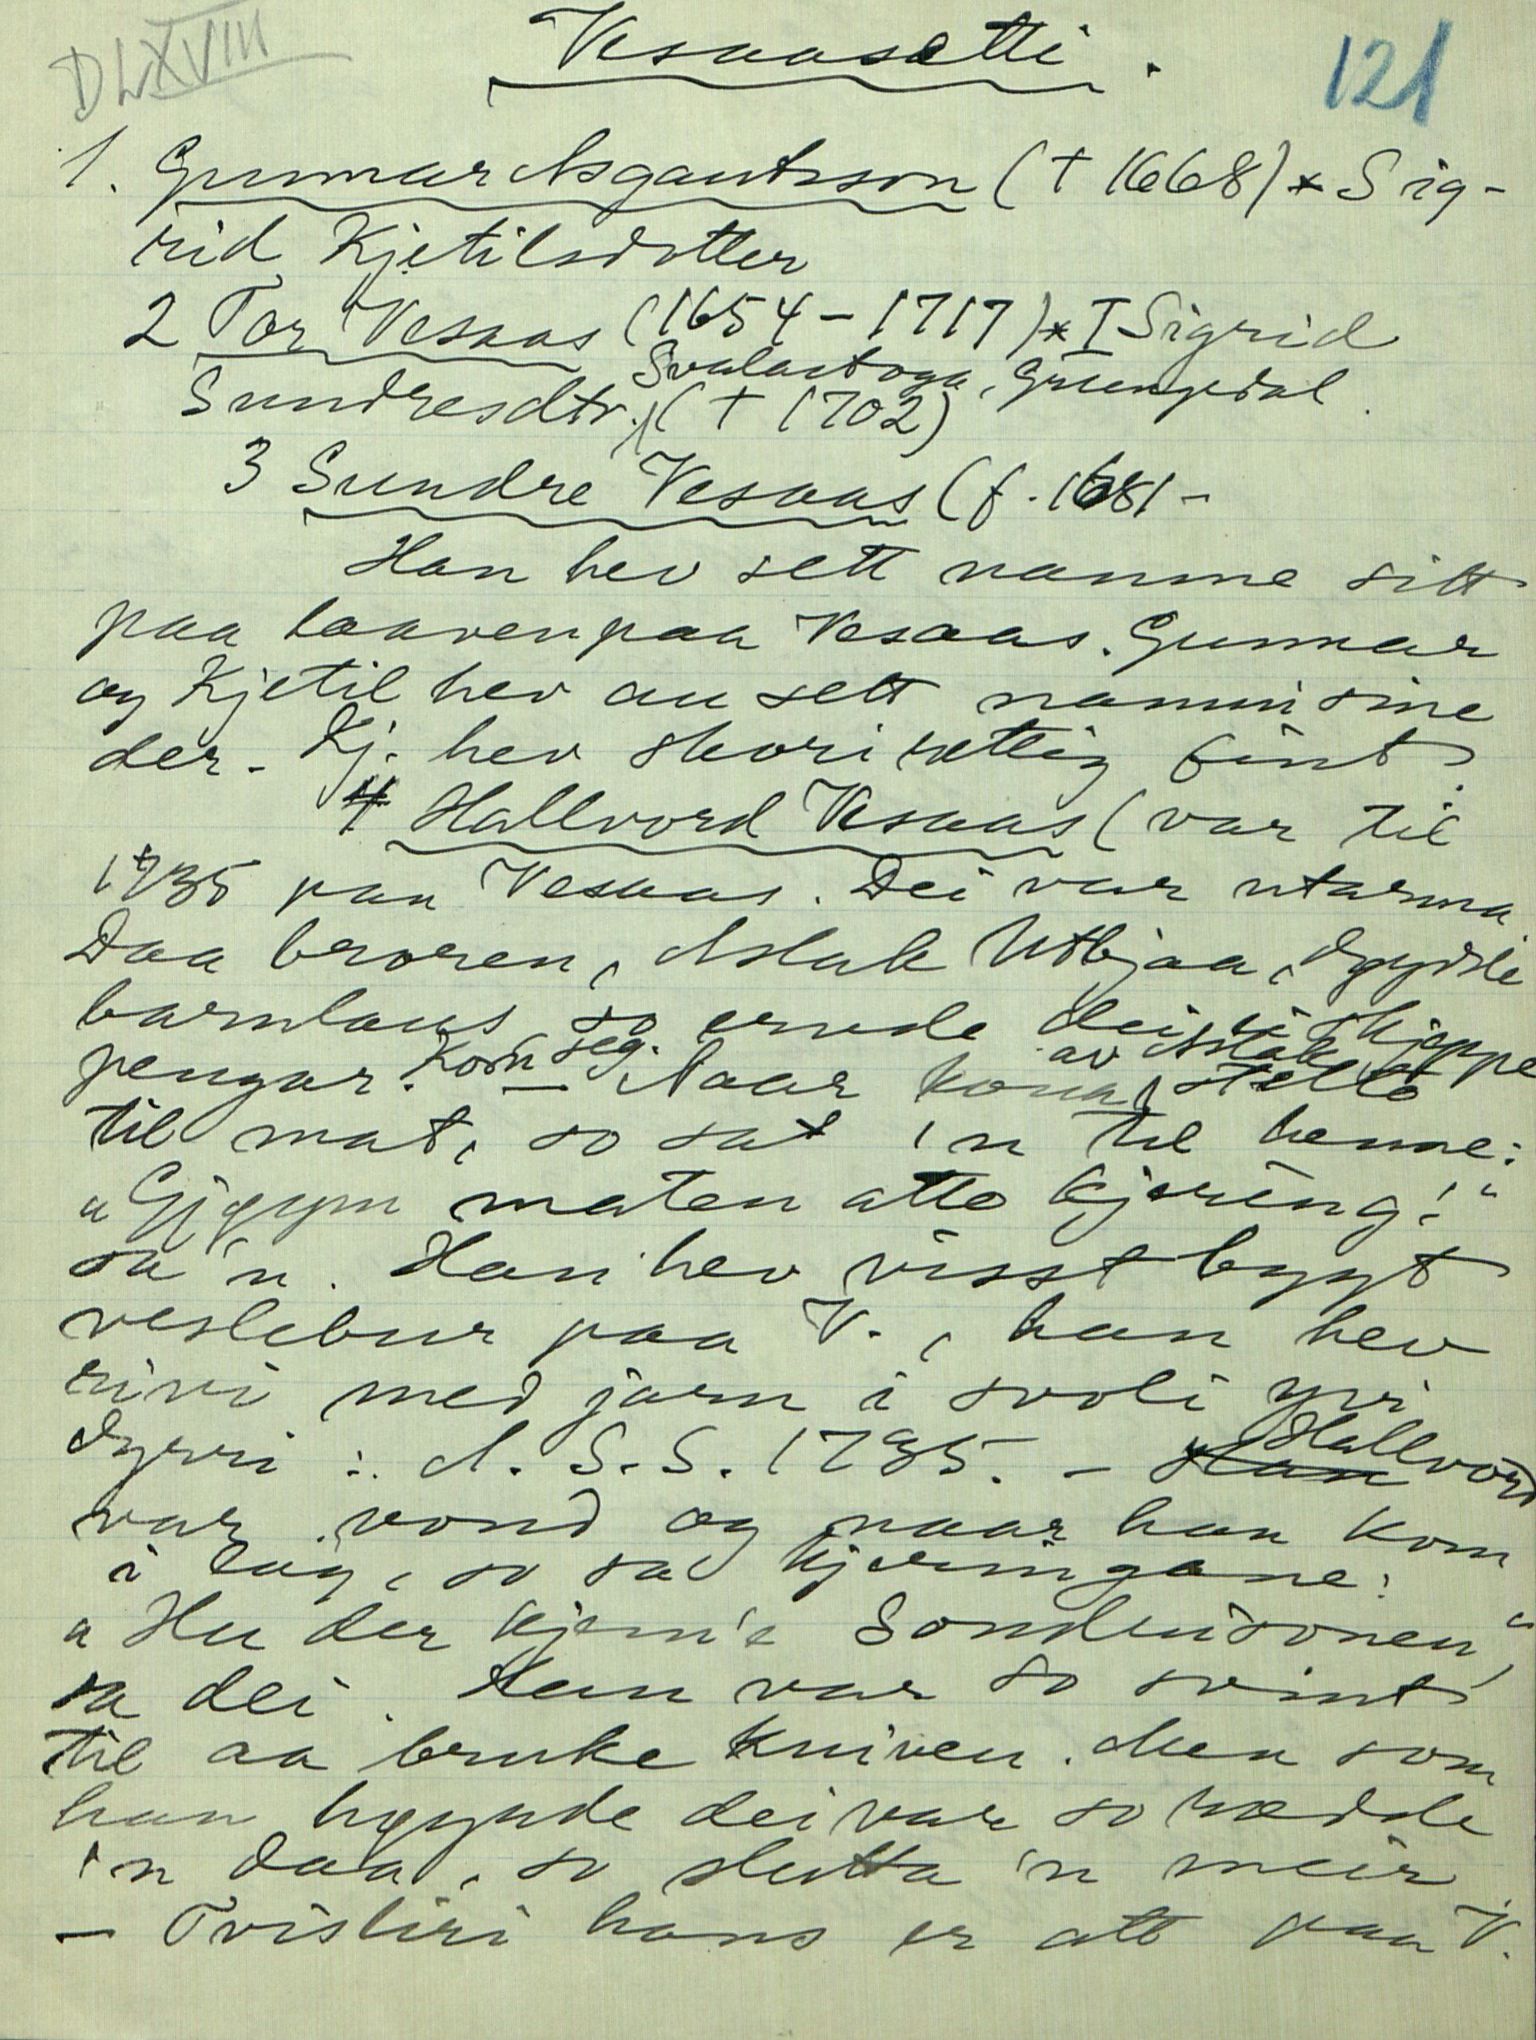 DLXVIII
Vesaasætti.
121
1. Gunnar Asgautsson († 1668) * Sig-
rid Kjetilsdotter
2 Tor Vesaas (1654-1717) * I Sigrid
Svalastoga, Grungedal.
Sundresdtr. († 1702)
3 Sundre Vesaas (f. 1681-
Han hev sett namne sitt
paa laaven paa Vesaas. Gunnar
og Kjetil hev au sett namni sine
der. Kj. hev skori rettig fint.
4 Hallvord Vesaas (var til
1735 paa Vesaas. Dei var utarma
Daa broren, Aslak Utbjaa, døydde
barnlaus, so ervde dei ei skjeppe
pengar. Kom seg. - Naar kona av Aslak stellte
til mat, so sat 'n til henne:
"Gjøym maten atte kjering!"
sa 'n. Han hev visst bygt
veslebur paa V., han hev
rivi med jarn i svoli yvi
dyrri: A. S. S. 1735. - Han Hallvord
var vond og naar han kom
i lag, so sa kjeringane:
"Hu der kjem 'e Sondresonen",
sa dei. Han var so svint
til aa bruke kniven. Men som
han høyrde dei var so rædde
'n daa, so slutta 'n meir
- Tvisliri hans er att paa V.